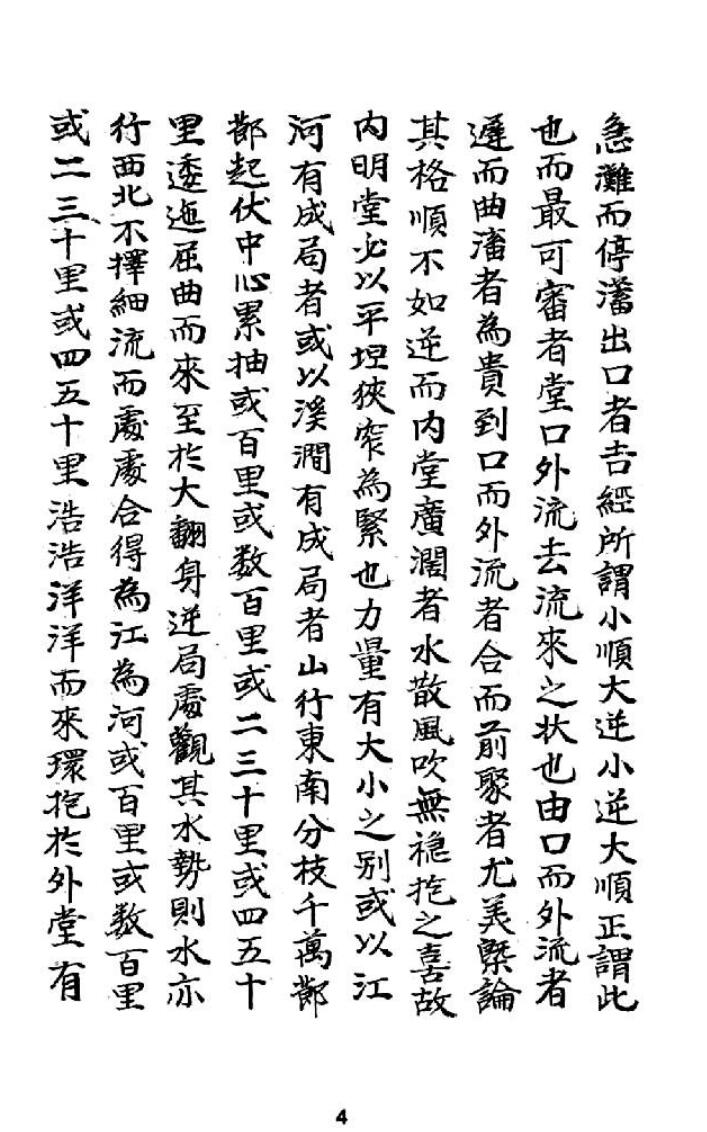 急灘而停瀦出口者吉經所謂小順大逆小逆大順正謂此
也而最可審者堂口外流去流來之状也由口而外流者
遲而曲瀦者為貴到口而外流者合而前聚者尤美槩論
其格順不如逆而内堂廣濶者水散風吹無穏抱之喜故
内明堂必以平坦狹窄為緊也力量有大小之别或以江
河有成局者或以溪澗有成局者山行東南分枝千萬鄣
鄣起伏中心累抽或百里或数百里或二三十里或四五十
里逶迤屈曲而來至於大翻身逆局處觀其水勢則水亦
行西北不擇細流而處處合得為江為河或百里或数百里
或二三十里或四五十里浩浩洋洋而來環抱於外堂有
4